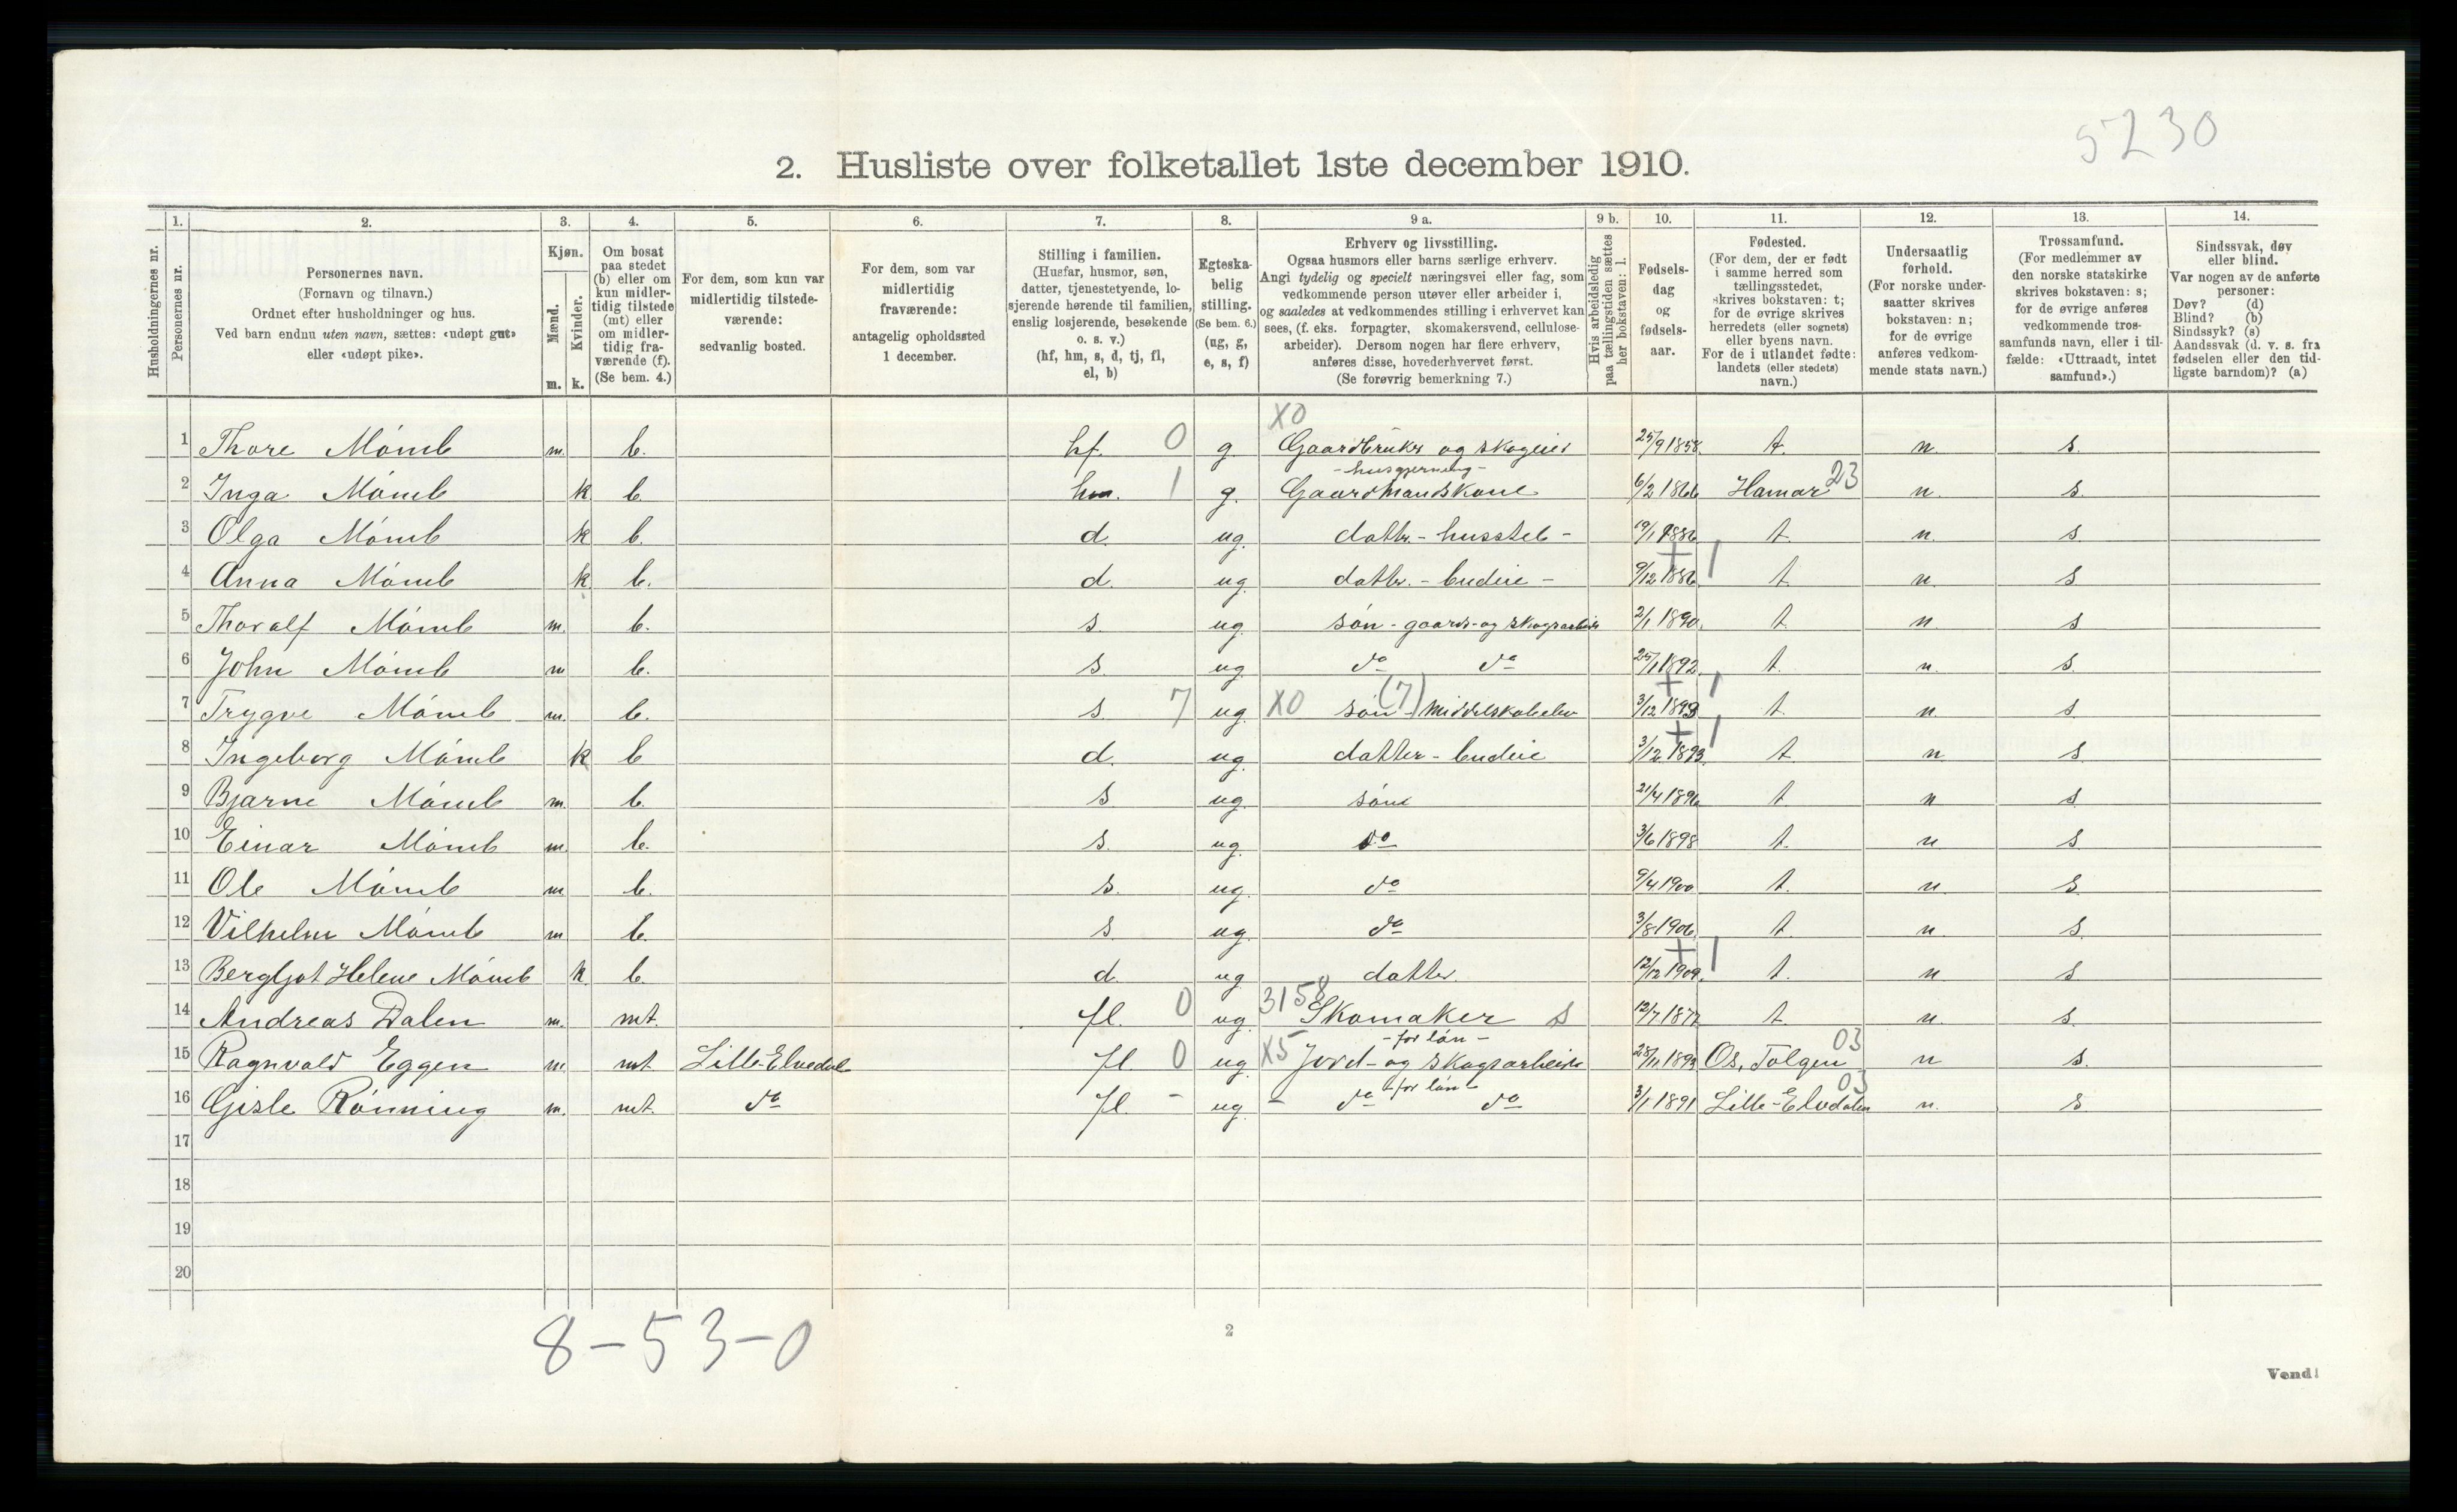 5230
2. Husliste over folketallet 1ste december 1910.
Husholdningernes nr.
1. Personernes nr.
2. Personernes navn.
(Fornavn og tilnavn.)
Ordnet efter husholdninger og hus.
Ved barn endnu uten navn, sættes: «udøpt gut»
eller «udøpt pike».
3. Kjøn.
Mænd. m.
Kvinder. k.
4. Om bosat
paa stedet
(b) eller om
kun midler-
tidig tilstede
(mt) eller
om midler-
tidig fra-
værende (f).
(Se bem. 4.)
5. For dem, som kun var
midlertidig tilstede-
værende:
sedvanlig bosted.
6. For dem, som var
midlertidig
fraværende:
antagelig opholdssted
1 december.
7. Stilling i familien.
(Husfar, husmor, søn,
datter, tjenestetyende, lo-
sjerende hørende til familien,
enslig losjerende, besøkende
o. s. v.)
(hf, hm, s, d, tj, fl,
el, b)
8. Egteska-
belig
stilling.
(Se bem. 6.)
(ug, g,
e, s, f)
9 a. Erhverv og livsstilling.
Ogsaa husmors eller barns særlige erhverv.
Angi tydelig og specielt næringsvei eller fag, som
vedkommende person utøver eller arbeider i,
og saaledes at vedkommendes stilling i erhvervet kan
sees, (f. eks. forpagter, skomakersvend, cellulose-
arbeider). Dersom nogen har flere erhverv,
anføres disse, hovederhvervet først.
(Se forøvrig bemerkning 7.)
9 b. Hvis arbeidsledig
paa tællingstiden sættes
her bokstaven: l.
10. Fødsels-
dag
og
fødsels-
aar.
11. Fødested.
(For dem, der er født
i samme herred som
tællingsstedet,
skrives bokstaven: t;
for de øvrige skrives
herredets (eller sognets)
eller byens navn.
For de i utlandet fødte:
landets (eller stedets)
navn.)
12. Undersaatlig
forhold.
(For norske under-
saatter skrives
bokstaven: n;
for de øvrige
anføres vedkom-
mende stats navn.)
13. Trossamfund.
(For medlemmer av
den norske statskirke
skrives bokstaven: s;
for de øvrige anføres
vedkommende tros-
samfunds navn, eller i til-
fælde: «Uttraadt, intet
samfund».)
14. Sindssvak, døv
eller blind.
Var nogen av de anførte
personer:
Døv? (d)
Blind? (b)
Sindssyk? (s)
Aandssvak (d. v. s. fra
fødselen eller den tid-
ligste barndom)? (a)
X0
1 Thore Mömb m. b. hf. 0 g. Gaardbruker og skogeier 25/9 1858 t. n. s.
- husgjerning -
2 Inga Mömb k b. hm. 1 g. Gaardmandskone 6/2 1866 Hamar 23 n. s.
3 Olga Mömb k b. d. ug. datter - husstel - 19/1 1886 t. n. s.
4 Anna Mömb k b. d. ug. datter. - budeie - 9/12 1886 + 1 t. n. s
5 Thoralf Mömb m. b. s. ug. sön - gaards- og skogsarbeider 2/1 1890. t. n s
6 John Mömb m b. s. ug. do do 25/1 1892 t. n. s.
7 Trygve Mömb m. b. s. 7 ug. X0 sön (7) Middelskoleelev 3/12 1893 + 1 t. n. s.
8 Ingeborg Mömb k b d. ug. datter - budeie 3/12 1893. + 1 t. n s.
9 Bjarne Mömb m. b. s ug. söne 21/4 1896 t n s
10 Einar Mömb m. b. s. ug. do 3/6 1898 t. n s.
11 Ole Mömb m. b. s. ug. do 9/4 1900 t. n. s.
12 Vilhelm Mömb m b. s. ug. do 3/8 1906 t. n s.
13 Bergljot Helene Mömb k b. d. ug datter. 12/12 1909. + 1 t. n s
14 Andreas Dalen m. mt. fl. 0 ug. 3158 Skomaker s 12/7 t. n. s.
- for lön -
15 Ragnvald Eggen m. mt. Lille-Elvedal fl. 0 ug. X5 Jord- og skogsarbeider 28/11 1893 Os, Tolgen 03 n s.
- for lön -
16 Gisle Rönning m. mt. do fl. - ug. - do do 3/1 1891 Lille-Elvdalen 03 n. s.
17
18
19
20
8-53-0
2
Vend!